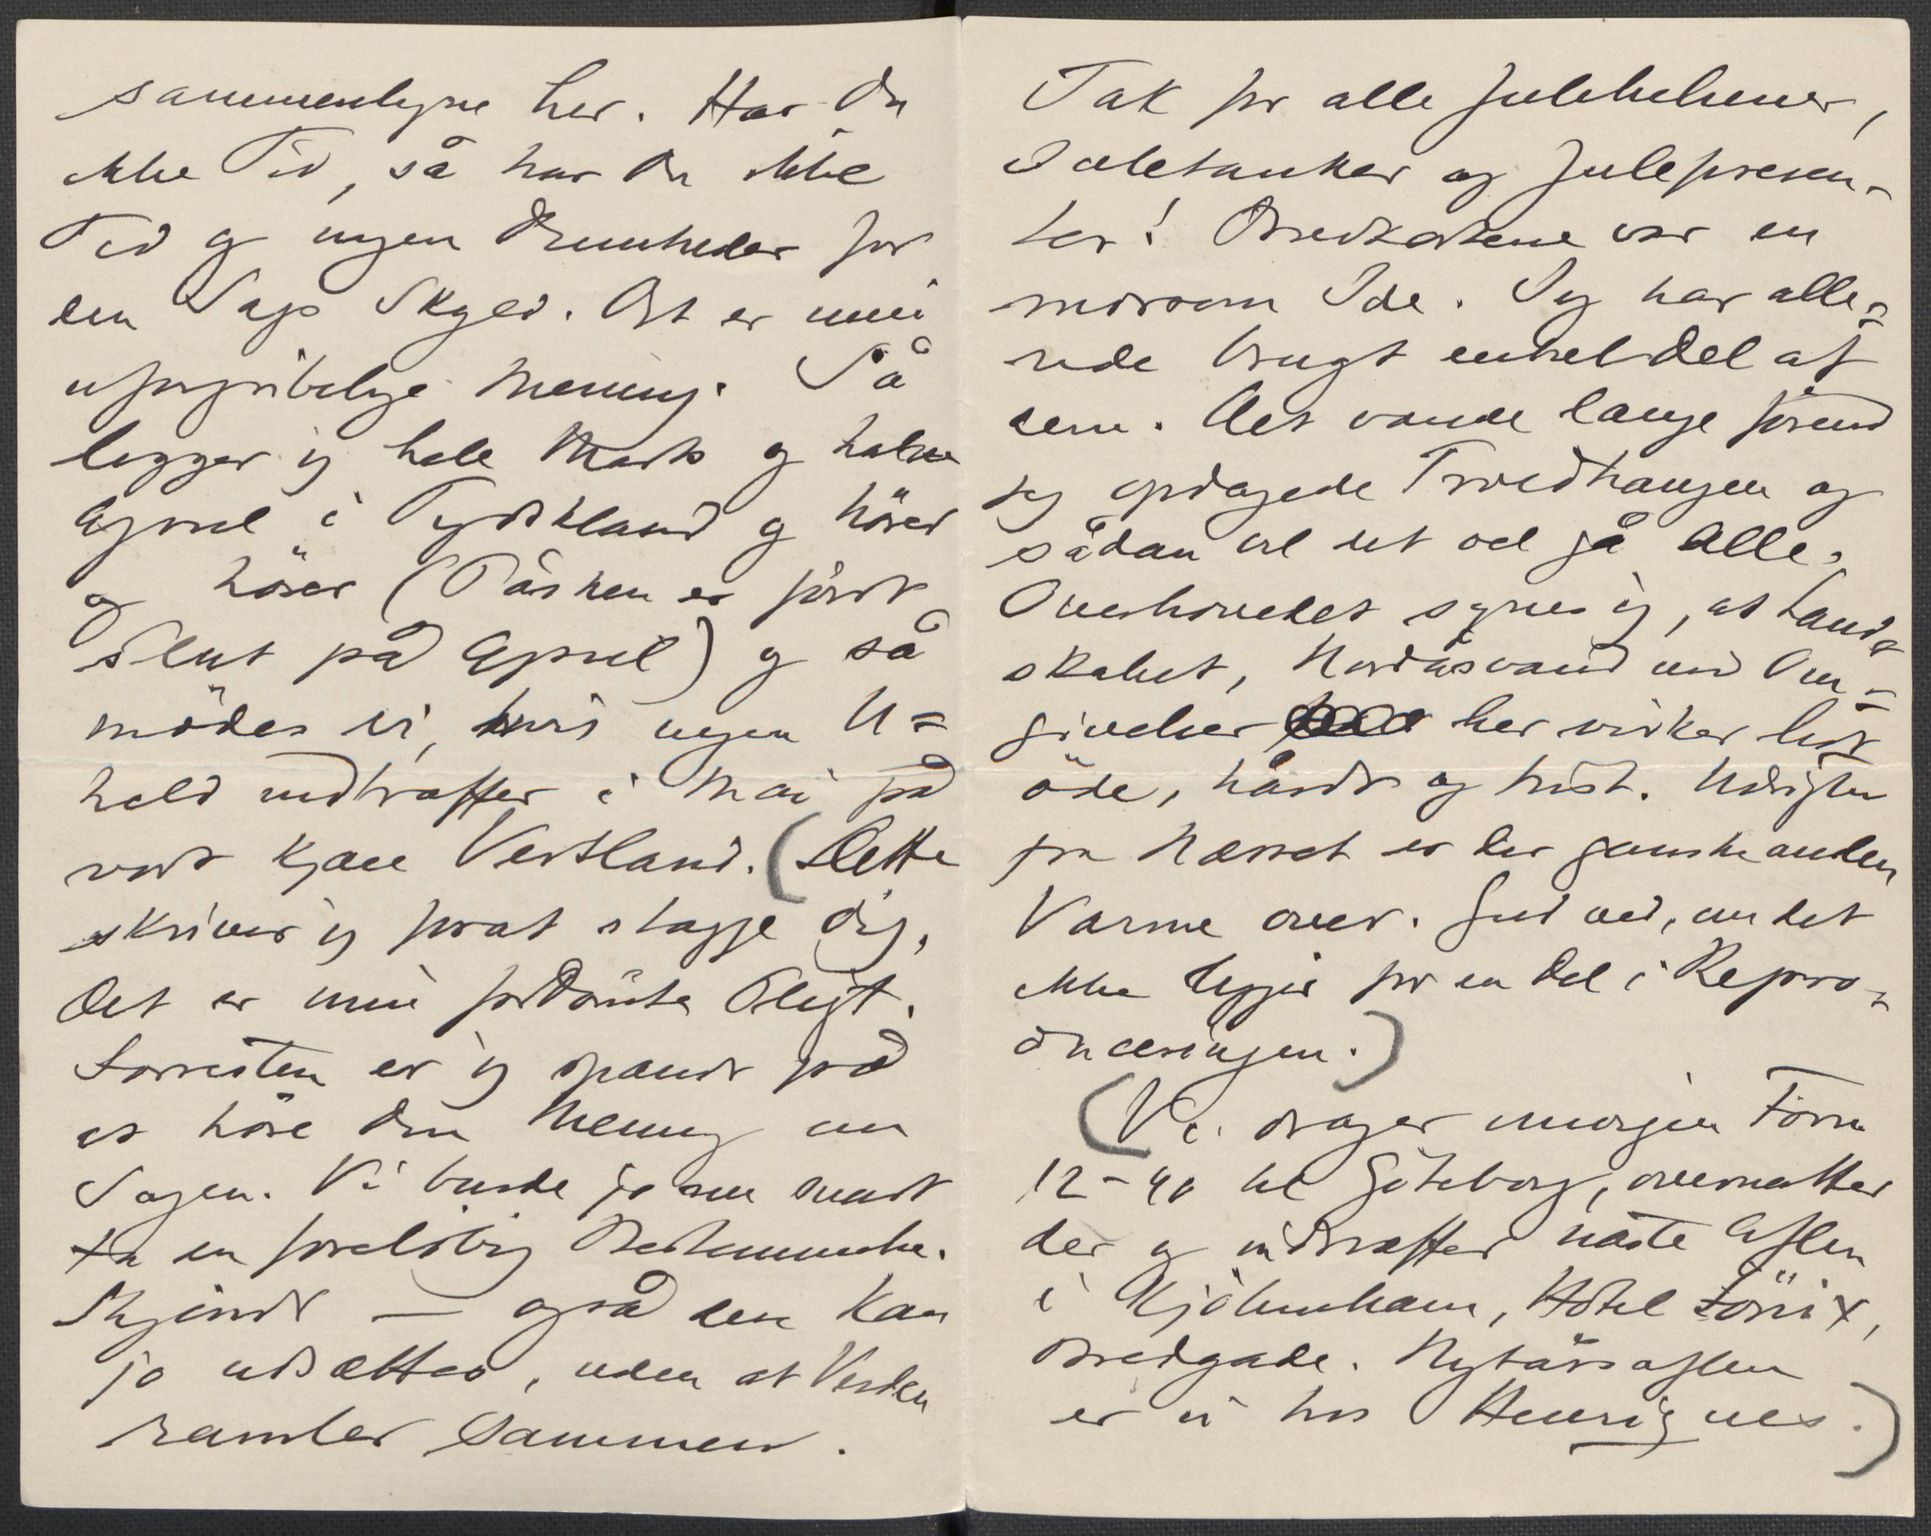 sammenligne her. Har Du
ikke Tid, så har Du ikke
Tid og ingen Dumheder for
den Sags Skyld. Det er min
uforgribelige Mening. Så
lægger jeg hele Marts og halve
April i Tydskland og hører
og hører (Påsken er først
Slut på April) og så
mødes vi, hvis ingen U=
held indtræffer i Mai på
vort kjære Vestland. (Dette
skriver jeg for at stagge dig,
Det er min fordømte Pligt.
Forresten er jeg spændt på
at høre din Mening om
Sagen. Vi burde jo nu snart
ta en foreløbig Bestemmelse.
Skjøndt — også den kan
jo udsættes, uden at Verden
ramler sammen.
Tak for alle Julehilsener,
Juletanker og Julepresen-
ter! Brevkortene var en
morsom Ide. Jeg har alle=
rede brugt en hel del af
dem. Det varede længe førend
jeg opdagede Troldhaugen og
sådan vil det vel gå Alle.
Overhovedet synes jeg, at Land=
skabet, Nordåsvand med Om=
givelser her virker lidt
øde, hårdt og trist. Udsigten
fra Næsset er der ganske anden
Varme over. Gud ved, om det
ikke ligger for en Del i Repro=
duceringen.)
(Vi drager imorgen Form
12-40 til Göteborg, overnatter
der og indtræffer næste Aften
i Kjöbenhavn, Hotel Fönix,
Bredgade. Nytårsaften
er vi hos Henriques.)